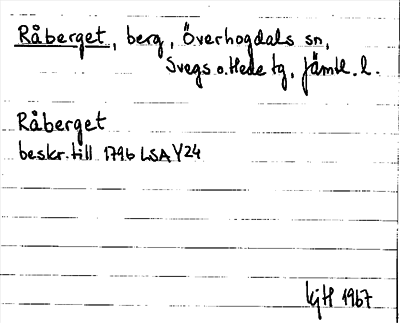 Råberget, berg, Överhogdals sn,
Svegs o. Hede tg, Jämtl. l.
Råberget
beskr. till 1796 LSA Y24
kjH 1967